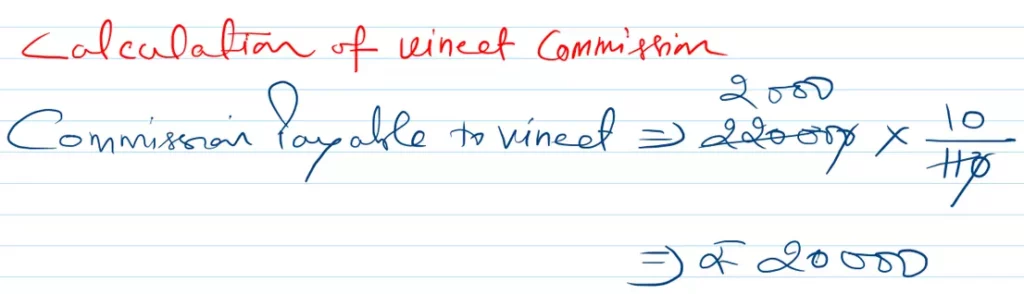 Calculation of vineet Commission
2000
Commission Payable to vineet ⇒ 220000 × 10/110
⇒ ₹ 20000